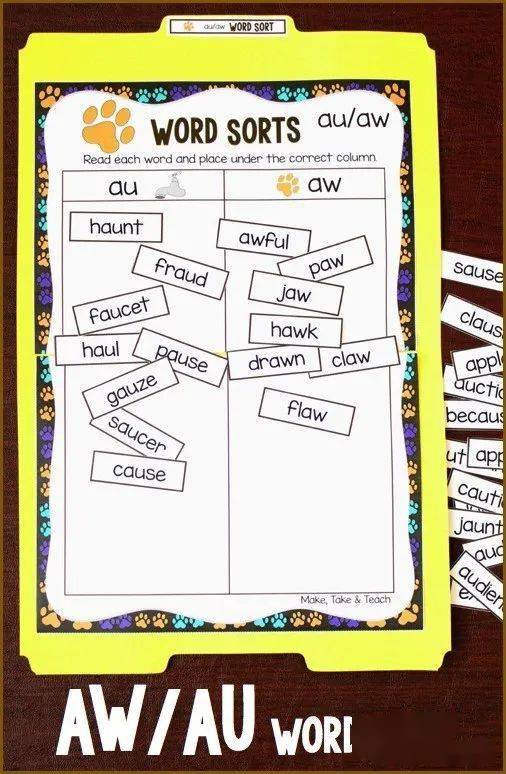 au/aw WORD SORT
WORD SORTS au/aw
Read each word and place under the correct column.
au aw
haunt
awful
fraud
paw
jaw
faucet
hawk
haul
pause
drawn
claw
gauze
flaw
saucer
cause
Make, Take & Teach
sause
claus
appl
auctio
becaus
ut app
cauti
jaunt
aud
audien
er
AW/AU WORD